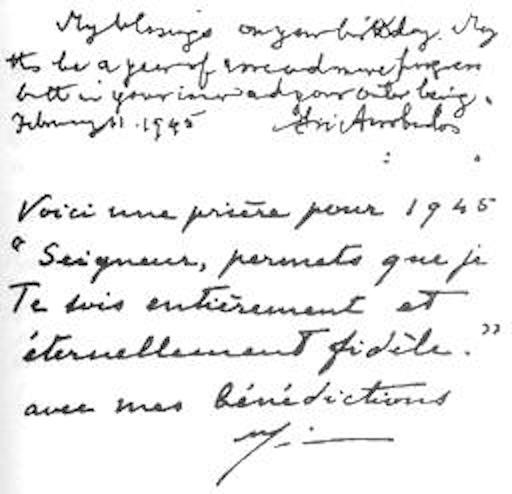 My blessings on your birthday. May
this be a year of more and more progress
both in your inner and your outer being.
February 11. 1945 Sri Aurobindo
Voici une prière pour 1945
"Seigneur, permets que je
Te sois entièrement et
éternellement fidèle."
avec mes bénédictions